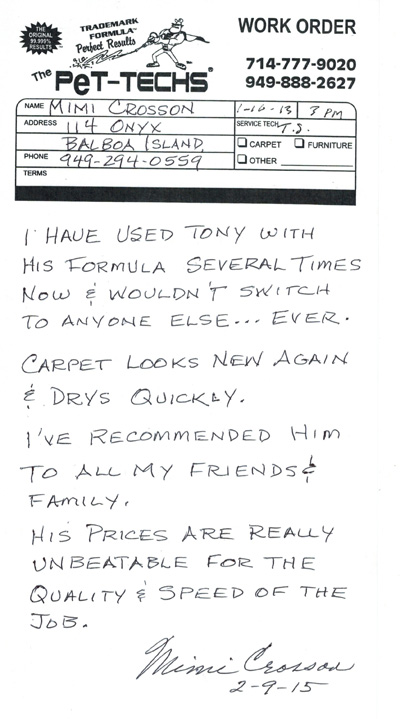 THE ORIGINAL 99.999% RESULTS
TRADEMARK FORMULA™
Perfect Results
The PeT-TECHS®
WORK ORDER
714-777-9020
949-888-2627
NAME MIMI CROSSON 1-16-13 3 PM
ADDRESS 114 ONYX SERVICE TECH. T.S.
BALBOA ISLAND, CARPET FURNITURE
PHONE 949-294-0559 OTHER
TERMS
I HAVE USED TONY WITH
HIS FORMULA SEVERAL TIMES
NOW & WOULDN'T SWITCH
TO ANYONE ELSE... EVER.
CARPET LOOKS NEW AGAIN
& DRYS QUICKLY.
I'VE RECOMMENDED HIM
TO ALL MY FRIENDS &
FAMILY.
HIS PRICES ARE REALLY
UNBEATABLE FOR THE
QUALITY & SPEED OF THE
JOB.
Mimi Crosson
2-9-15